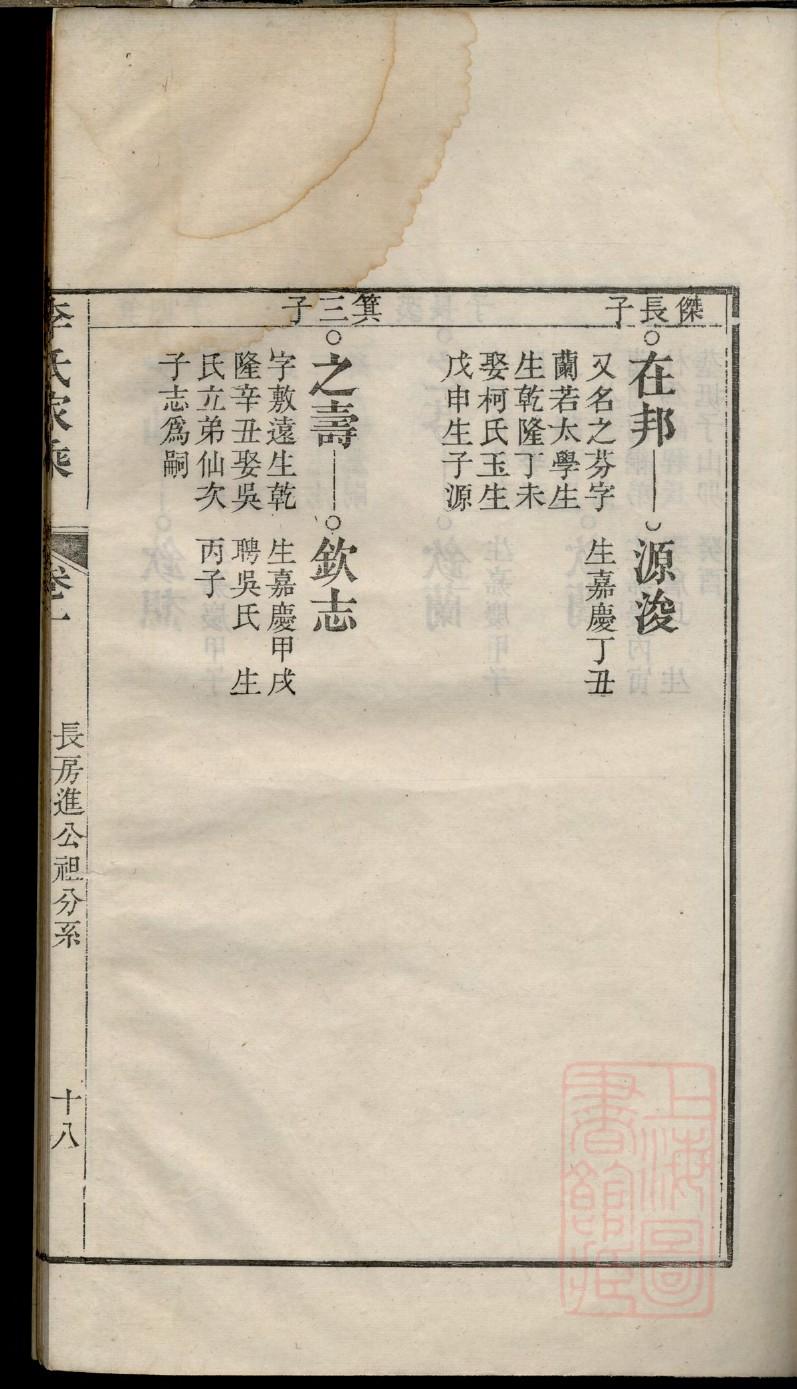 傑長子
在邦
又名之芬字
蘭若太學生
生乾隆丁未
娶柯氏玉生
戊申生子源
源浚
生嘉慶丁丑
箕三子
之壽
字敷遠生乾
隆辛丑娶吳
氏立弟仙次
子志爲嗣
欽志
生嘉慶甲戌
聘吳氏 生
丙子
李氏家乘
卷一
長房進公祖分系
十八
上海圖
書館藏